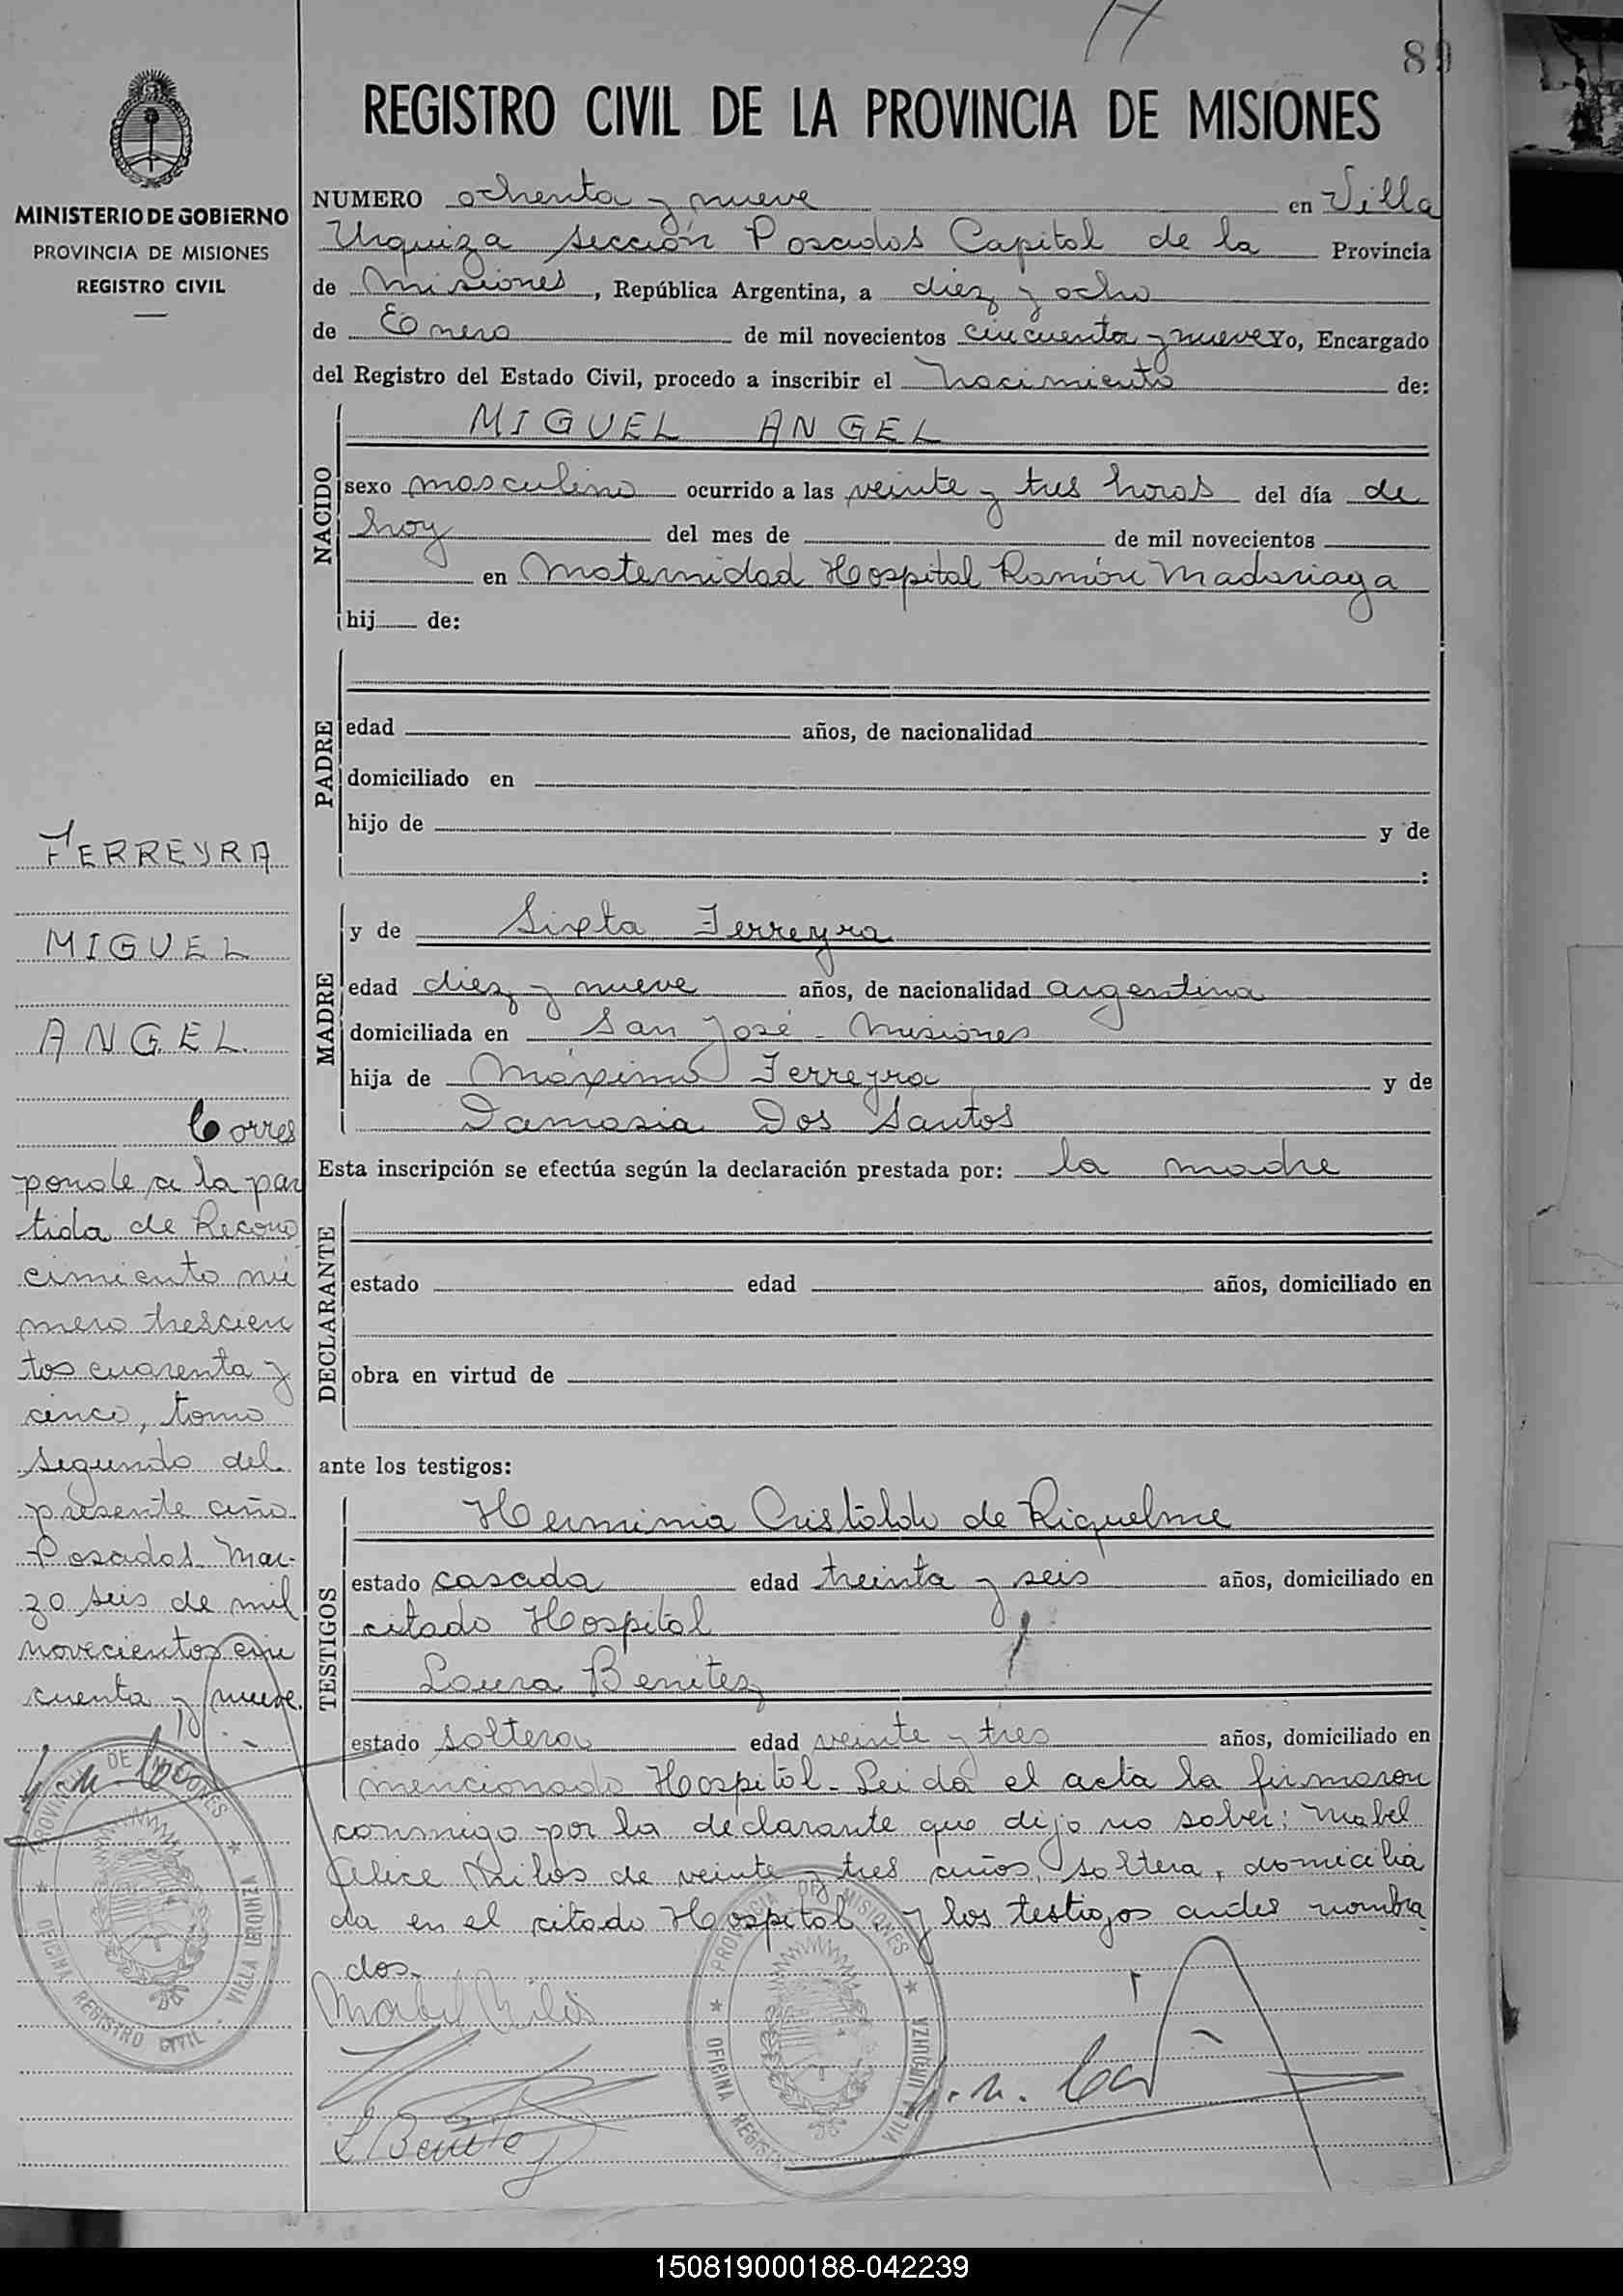 17
89
REGISTRO CIVIL DE LA PROVINCIA DE MISIONES
MINISTERIO DE GOBIERNO
PROVINCIA DE MISIONES
REGISTRO CIVIL
NUMERO ochenta y nueve en Villa
Urquiza sección Posadas Capital de la Provincia
de Misiones, República Argentina, a diez y ocho
de Enero de mil novecientos cincuenta y nueve Yo, Encargado
del Registro del Estado Civil, procedo a inscribir el nacimiento de:
NACIDO
MIGUEL ANGEL
sexo masculino ocurrido a las veinte y tres horas del día de
hoy del mes de de mil novecientos
en Maternidad Hospital Ramón Madariaga
hij de:
PADRE
edad años, de nacionalidad
domiciliado en
hijo de y de
:
MADRE
y de Sixta Ferreyra
edad diez y nueve años, de nacionalidad argentina
domiciliada en San José - Misiones
hija de Máximo Ferreyra y de
Damasia Dos Santos
Esta inscripción se efectúa según la declaración prestada por: la madre
DECLARANTE
estado edad años, domiciliado en
obra en virtud de
ante los testigos:
TESTIGOS
Herminia Cristaldo de Riquelme
estado casada edad treinta y seis años, domiciliado en
citado Hospital
Laura Benitez
estado soltera edad veinte y tres años, domiciliado en
mencionado Hospital - Leida el acta la firmaron
conmigo por la declarante que dijo no saber: Mabel
Alice de veinte y tres años, soltera, domicilia
da en el citado Hospital y los testigos antes nombra
dos.-
Mabel
L Benitez
FERREYRA
MIGUEL
ANGEL.
Corres
ponde a la par
tida de Recono
cimiento nú
mero trescien
tos cuarenta y
cinco, tomo
segundo del
presente año.
Posadas Mar-
zo seis de mil
novecientos cin
cuenta y nueve.
PROVINCIA DE MISIONES
OFICINA REGISTRO CIVIL - VILLA URQUIZA
PROVINCIA DE MISIONES
OFICINA REGIST VILLA URQUIZA
150819000188-042239